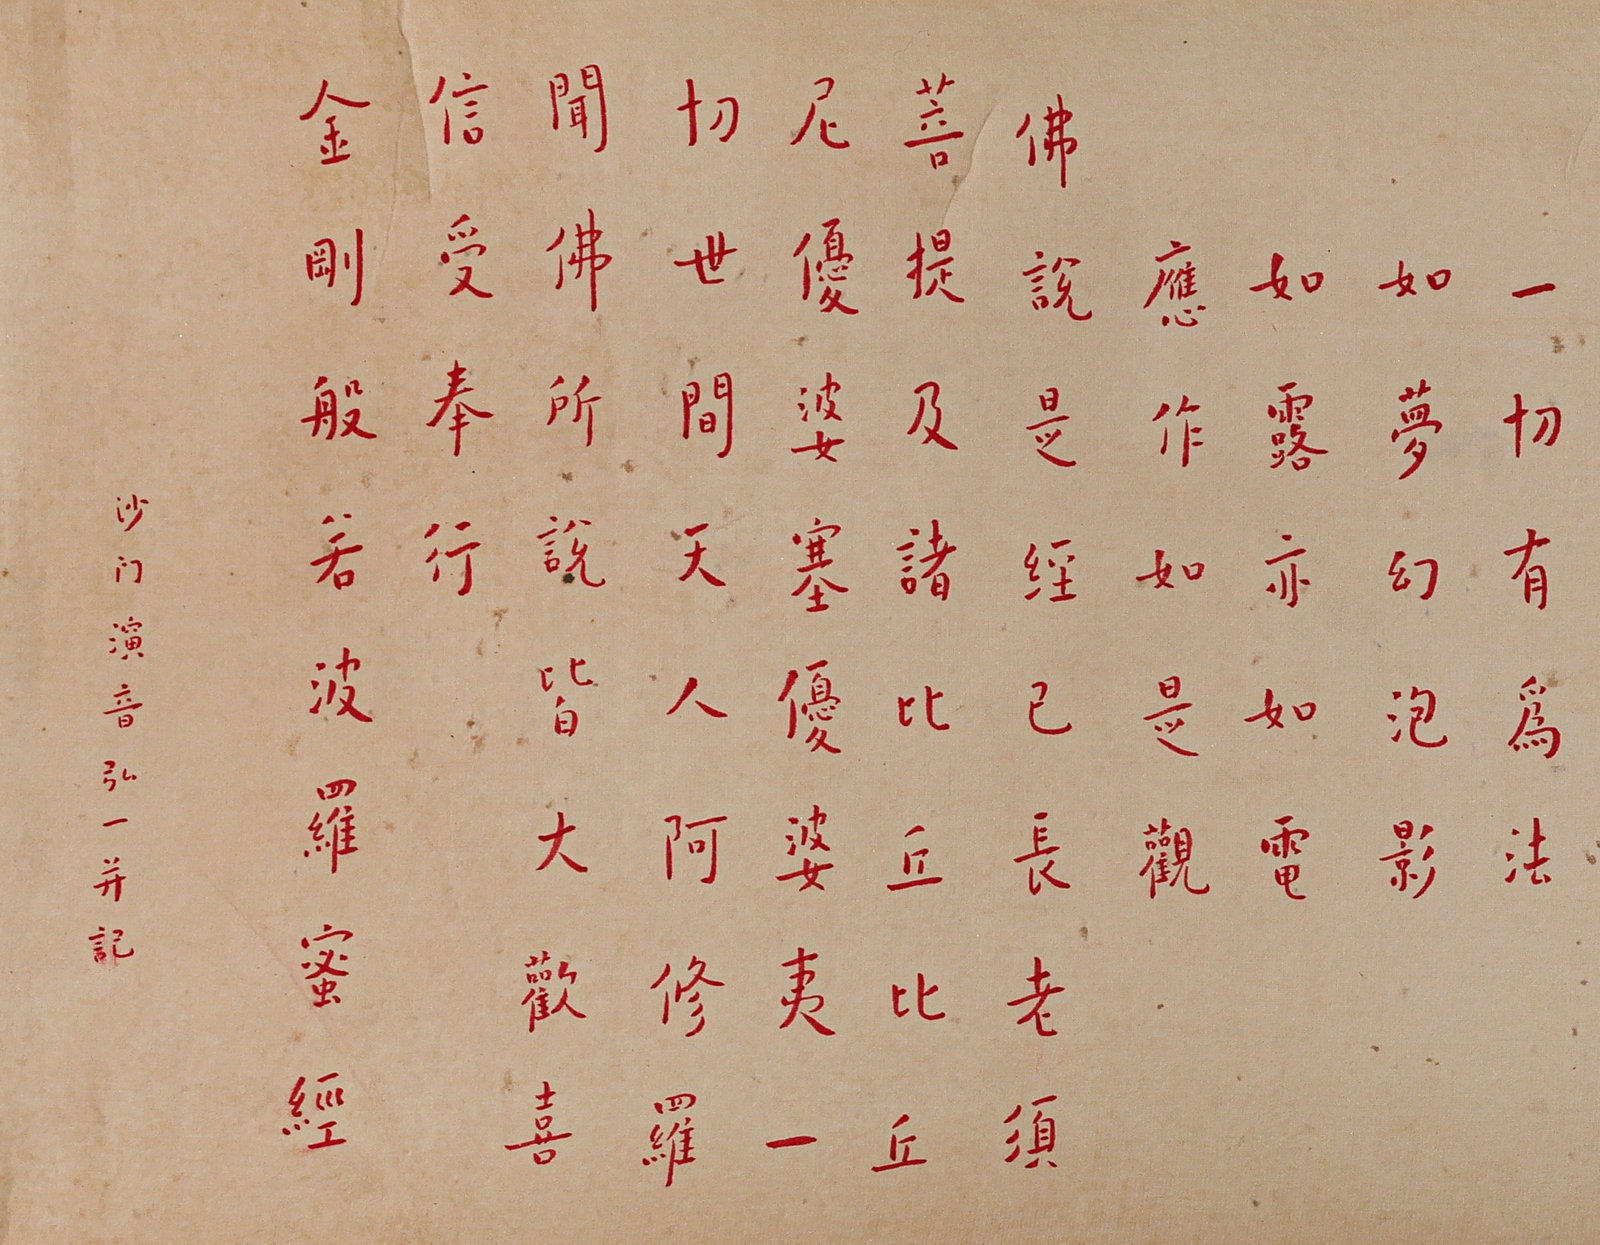 一切有爲法
如夢幻泡影
如露亦如電
應作如是觀
佛說是經已長老須
菩提及諸比丘比丘
尼優婆塞優婆夷一
切世間天人阿修羅
聞佛所說皆大歡喜
信受奉行
金剛般若波羅蜜經
沙门演音弘一并記